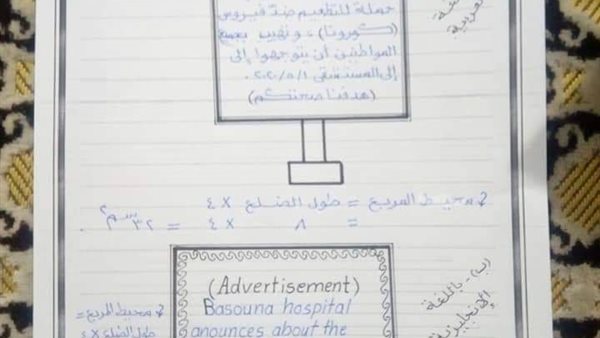 حملة للتطعيم ضدّ فيروس
(كورونا)، ونهيب بجميع
المواطنين أن يتوجهوا إلى
إلى المستشفى ٢٠٢٠/٥/١.
(هدفنا صحتكم)
العربية
محيط المربع = طول الضلع × ٤
= ٨ × ٤ = ٣٢ سم٢.
(ب) - باللغة
الإنجليزية
(Advertisement)
Basouna hospital
anounces about the
محيط المربع =
طول الضلع × ٤